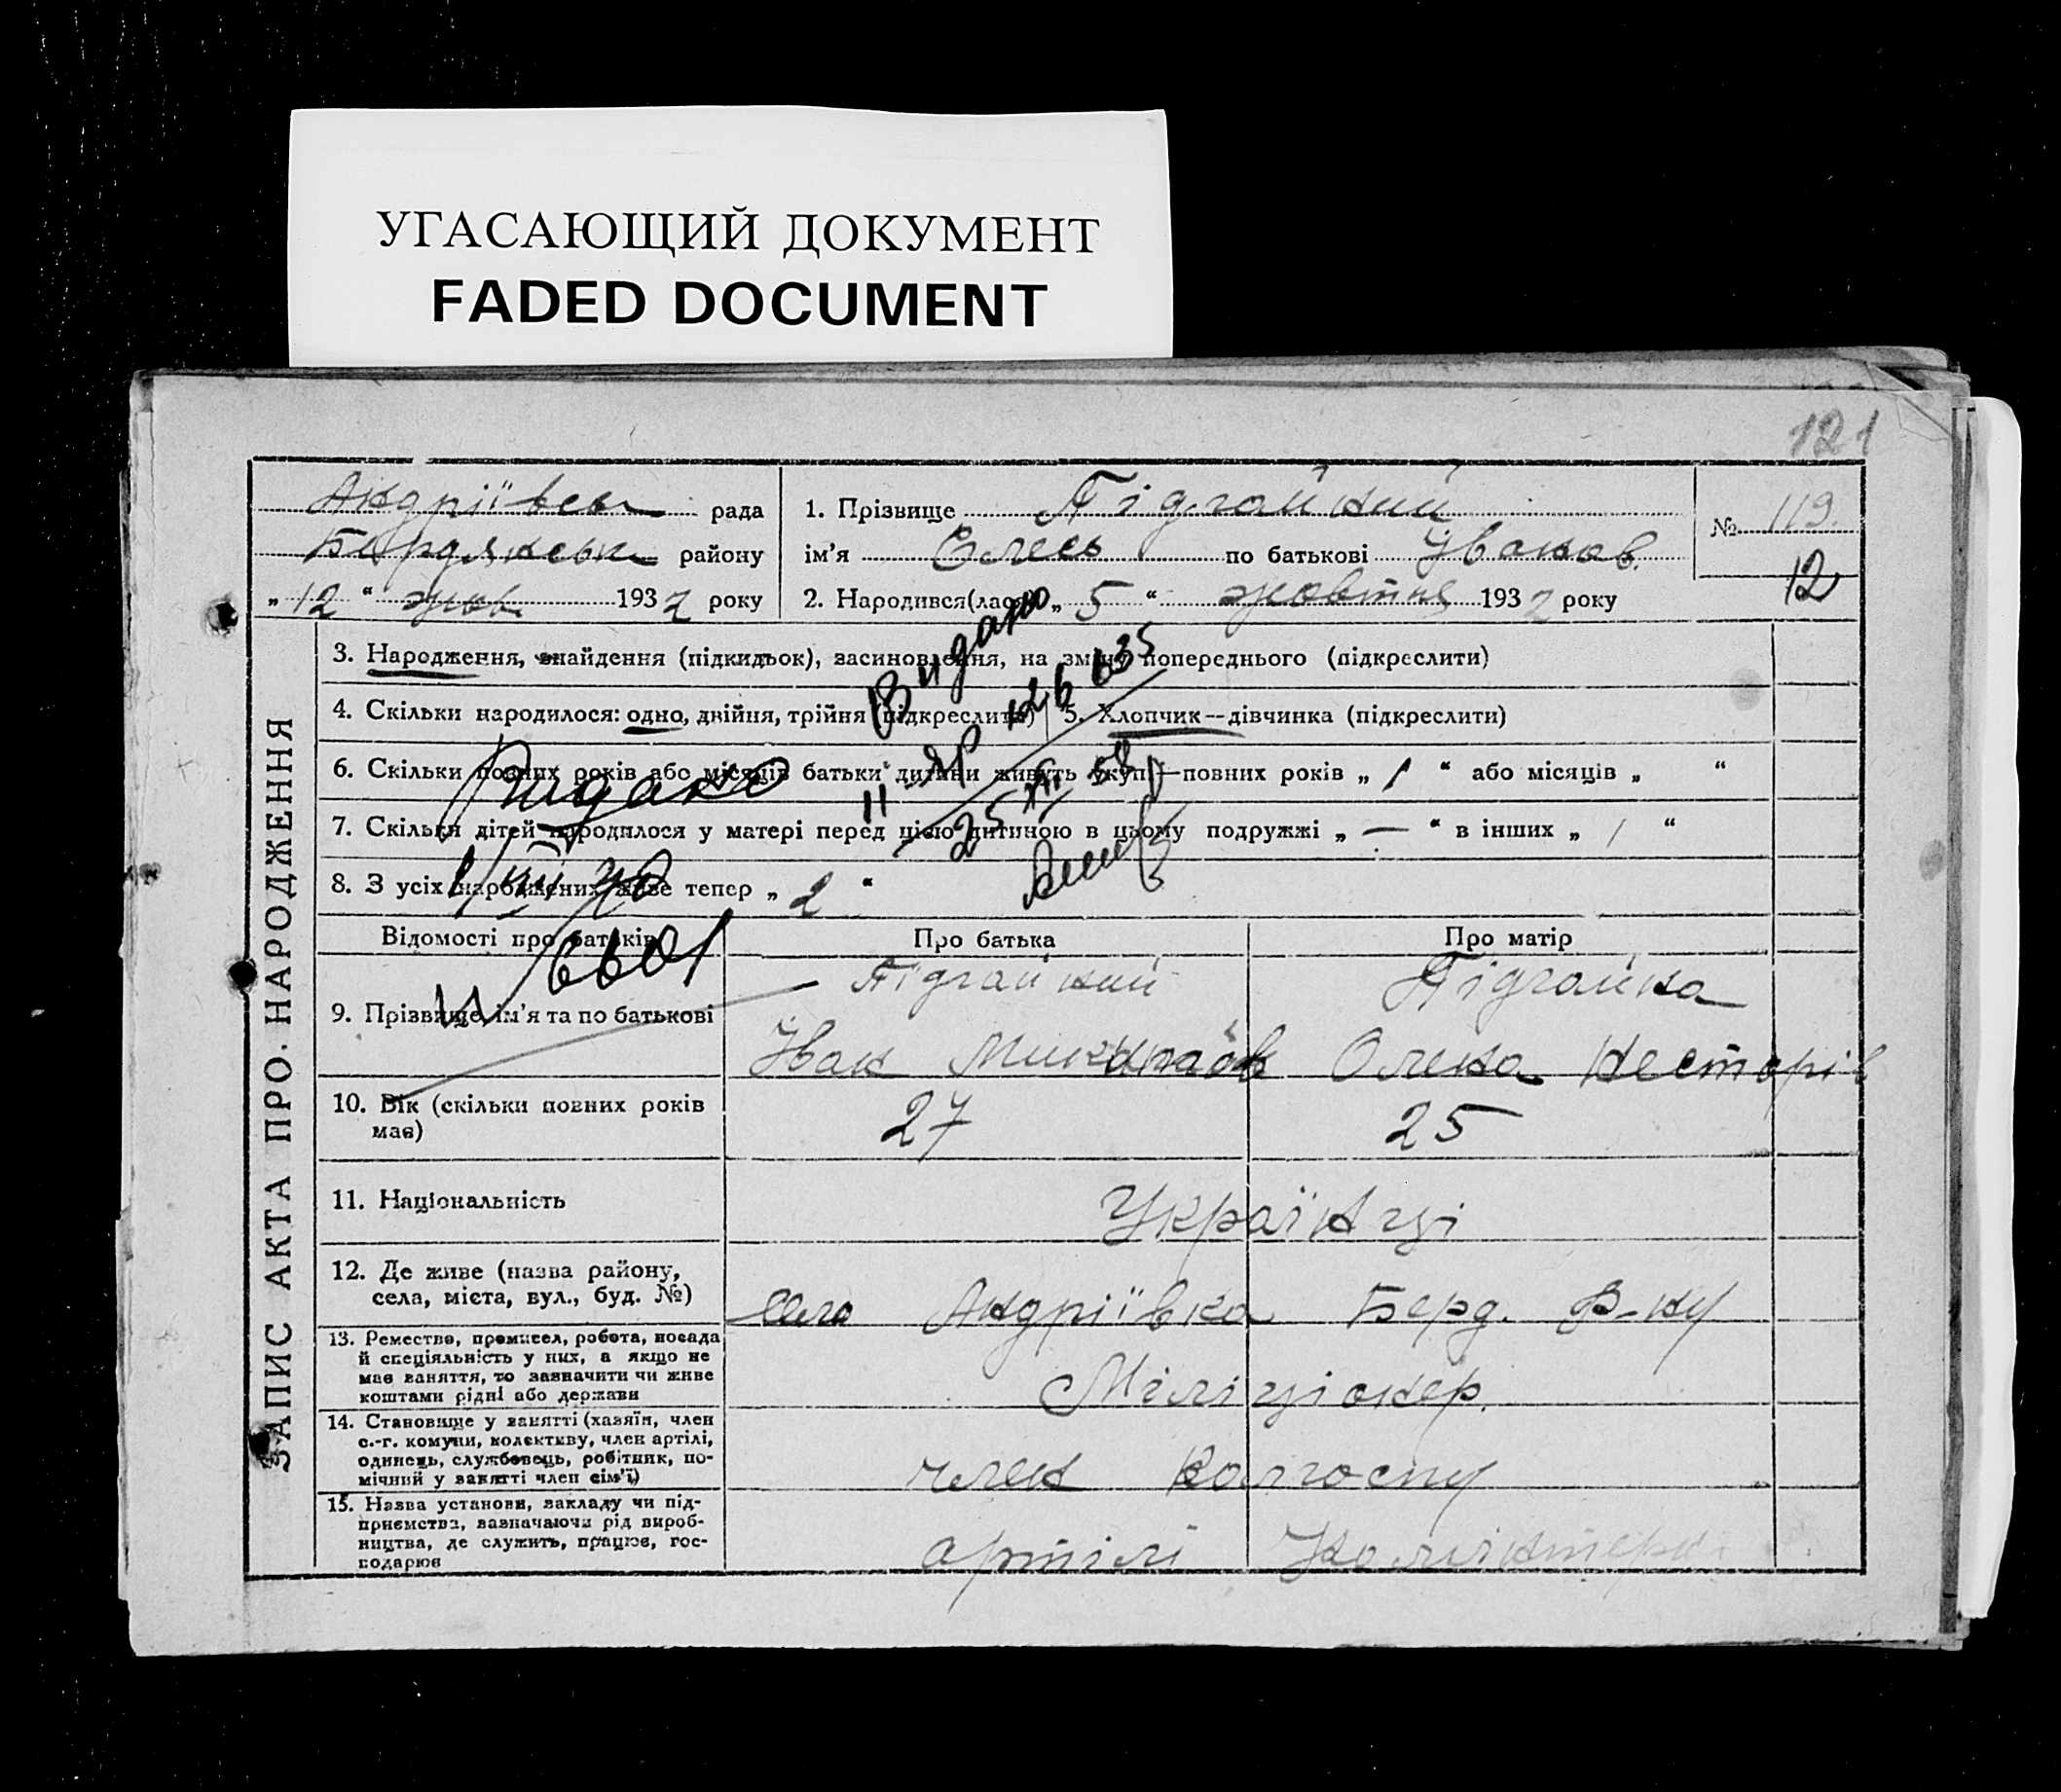 УГАСАЮЩИЙ ДОКУМЕНТ
FADED DOCUMENT
121
Андріївськ рада
Бердянськ району
„ 12 “ жов 1932 року
1. Прізвище Підгайний
ім’я Олесь по батькові Іванов.
2. Народився(лася) „ 5 “ жовтня 1932 року
№ 119.
12
ЗАПИС АКТА ПРО НАРОДЖЕННЯ
3. Народження, знайдення (підкидьок), засиновлення, на зміну попереднього (підкреслити)
4. Скільки народилося: одно, двійня, трійня (підкреслити)
5. Хлопчик—дівчинка (підкреслити)
6. Скільки повних років або місяців батьки дитини живуть укупі—повних років „ 1 “ або місяців „ “
7. Скільки дітей народилося у матері перед цією дитиною в цьому подружжі „ — “ в інших „ 1 “
8. З усіх народжених живе тепер „ 2 “
Видано
II ЯР 126635
25
Видано
6601
Відомості про батьків
Про батька
Про матір
9. Прізвище, ім’я та по батькові
Підгайний
Іван
Підгайна
Олена Несторів
10. Вік (скільки повних років
має)
27
25
11. Національність
Українці
12. Де живе (назва району,
села, міста, вул., буд. №)
село Андріївка Берд. Р-ну
13. Ремество, промисел, робота, посада
й спеціяльність у них, а якщо не
має заняття, то зазначити чи живе
коштами рідні або держави
Міліціонер.
14. Становище у занятті (хазяїн, член
с.-г. комуни, колективу, член артілі,
одинець, службовець, робітник, по-
мічний у занятті член сім’ї)
член колгоспу
15. Назва установи, закладу чи під-
приємства, зазначаючи рід вироб-
ництва, де служить, працює, гос-
подарює
артілі